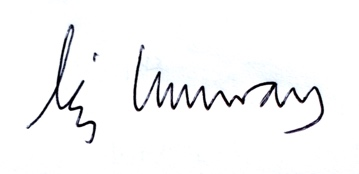 Liz Murray